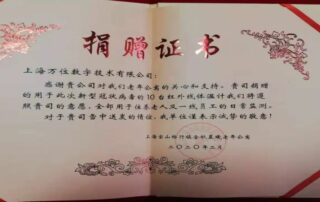 捐赠证书
上海万位数字技术有限公司:
感谢贵公司对我们老年公寓的关心和支持。贵司捐赠
的用于此次新型冠状病毒的10台红外线体温计我们将遵
照贵司的意愿,全部用于住养老人及一线员工的日常监测。
对于贵司雪中送炭的情谊,我单位谨表示诚挚的敬意!
上海宝山
老年公寓
二〇二〇年二月